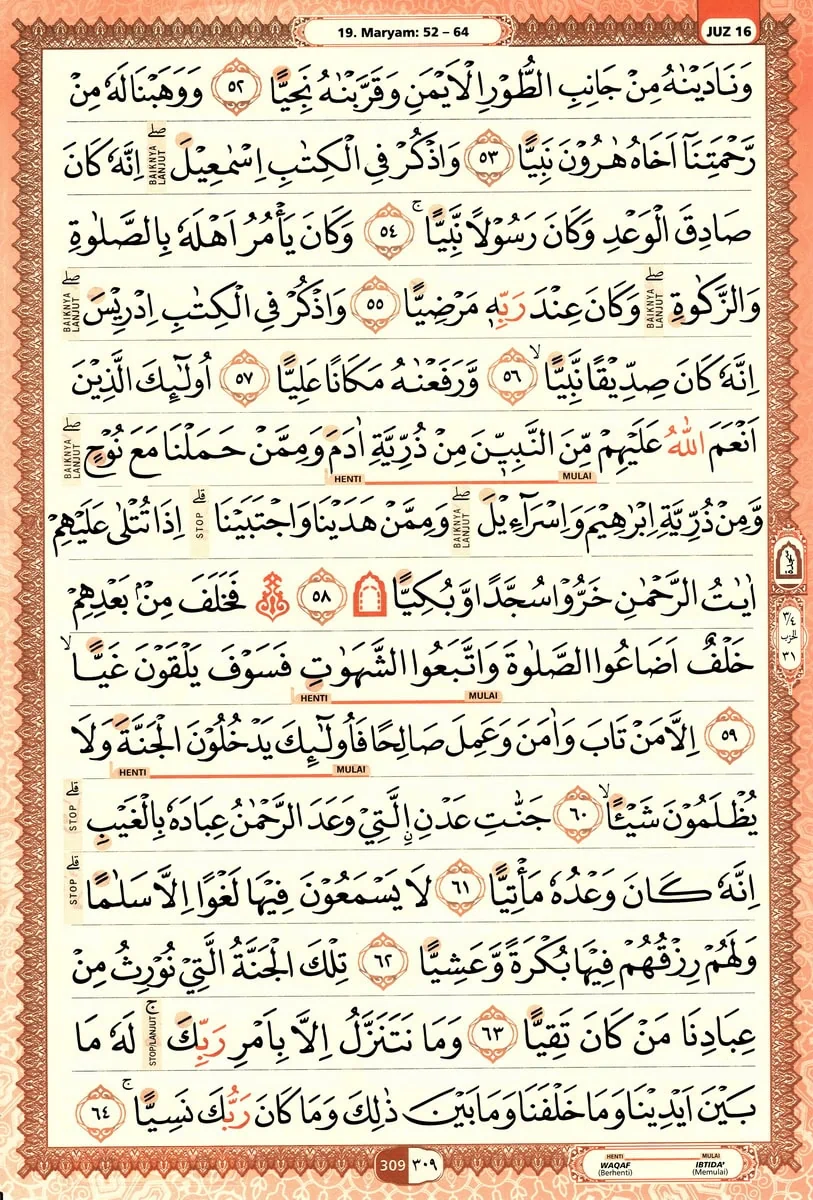 19. Maryam: 52 – 64
JUZ 16
وَنَادَيْنٰهُ مِنْ جَانِبِ الطُّوْرِ الْاَيْمَنِ وَقَرَّبْنٰهُ نَجِيًّا ٥٢ وَوَهَبْنَا لَهٗ مِنْ
رَّحْمَتِنَآ اَخَاهُ هٰرُوْنَ نَبِيًّا ٥٣ وَاذْكُرْ فِى الْكِتٰبِ اِسْمٰعِيْلَ ۖ BAIKNYA LANJUT اِنَّهٗ كَانَ
صَادِقَ الْوَعْدِ وَكَانَ رَسُوْلًا نَّبِيًّا ۚ ٥٤ وَكَانَ يَأْمُرُ اَهْلَهٗ بِالصَّلٰوةِ
وَالزَّكٰوةِ ۖ BAIKNYA LANJUT وَكَانَ عِنْدَ رَبِّهٖ مَرْضِيًّا ٥٥ وَاذْكُرْ فِى الْكِتٰبِ اِدْرِيْسَ ۖ BAIKNYA LANJUT
اِنَّهٗ كَانَ صِدِّيْقًا نَّبِيًّا ۙ ٥٦ وَّرَفَعْنٰهُ مَكَانًا عَلِيًّا ٥٧ اُولٰۤىِٕكَ الَّذِيْنَ
اَنْعَمَ اللّٰهُ عَلَيْهِمْ مِّنَ النَّبِيّٖنَ مِنْ ذُرِّيَّةِ اٰدَمَ وَمِمَّنْ حَمَلْنَا مَعَ نُوْحٍ ۖ BAIKNYA LANJUT
HENTI MULAI
وَّمِنْ ذُرِّيَّةِ اِبْرٰهِيْمَ وَاِسْرَاۤءِيْلَ ۖ BAIKNYA LANJUT وَمِمَّنْ هَدَيْنَا وَاجْتَبَيْنَا ۗ STOP اِذَا تُتْلٰى عَلَيْهِمْ
اٰيٰتُ الرَّحْمٰنِ خَرُّوْا سُجَّدًا وَّبُكِيًّا ۩ ٥٨ فَخَلَفَ مِنْۢ بَعْدِهِمْ
سجدة
٣/٤ الحزب ٣١
خَلْفٌ اَضَاعُوا الصَّلٰوةَ وَاتَّبَعُوا الشَّهَوٰتِ فَسَوْفَ يَلْقَوْنَ غَيًّا ۙ
HENTI MULAI
٥٩ اِلَّا مَنْ تَابَ وَاٰمَنَ وَعَمِلَ صَالِحًا فَاُولٰۤىِٕكَ يَدْخُلُوْنَ الْجَنَّةَ وَلَا
HENTI MULAI
يُظْلَمُوْنَ شَيْـًٔا ۙ ٦٠ جَنّٰتِ عَدْنِ ِۨالَّتِيْ وَعَدَ الرَّحْمٰنُ عِبَادَهٗ بِالْغَيْبِ ۗ STOP
اِنَّهٗ كَانَ وَعْدُهٗ مَأْتِيًّا ٦١ لَا يَسْمَعُوْنَ فِيْهَا لَغْوًا اِلَّا سَلٰمًا ۗ STOP
وَلَهُمْ رِزْقُهُمْ فِيْهَا بُكْرَةً وَّعَشِيًّا ٦٢ تِلْكَ الْجَنَّةُ الَّتِيْ نُوْرِثُ مِنْ
عِبَادِنَا مَنْ كَانَ تَقِيًّا ٦٣ وَمَا نَتَنَزَّلُ اِلَّا بِاَمْرِ رَبِّكَ ۚ STOP/LANJUT لَهٗ مَا
بَيْنَ اَيْدِيْنَا وَمَا خَلْفَنَا وَمَا بَيْنَ ذٰلِكَ وَمَا كَانَ رَبُّكَ نَسِيًّا ۚ ٦٤
309 ٣٠٩
HENTI MULAI
WAQAF (Berhenti) IBTIDA' (Memulai)